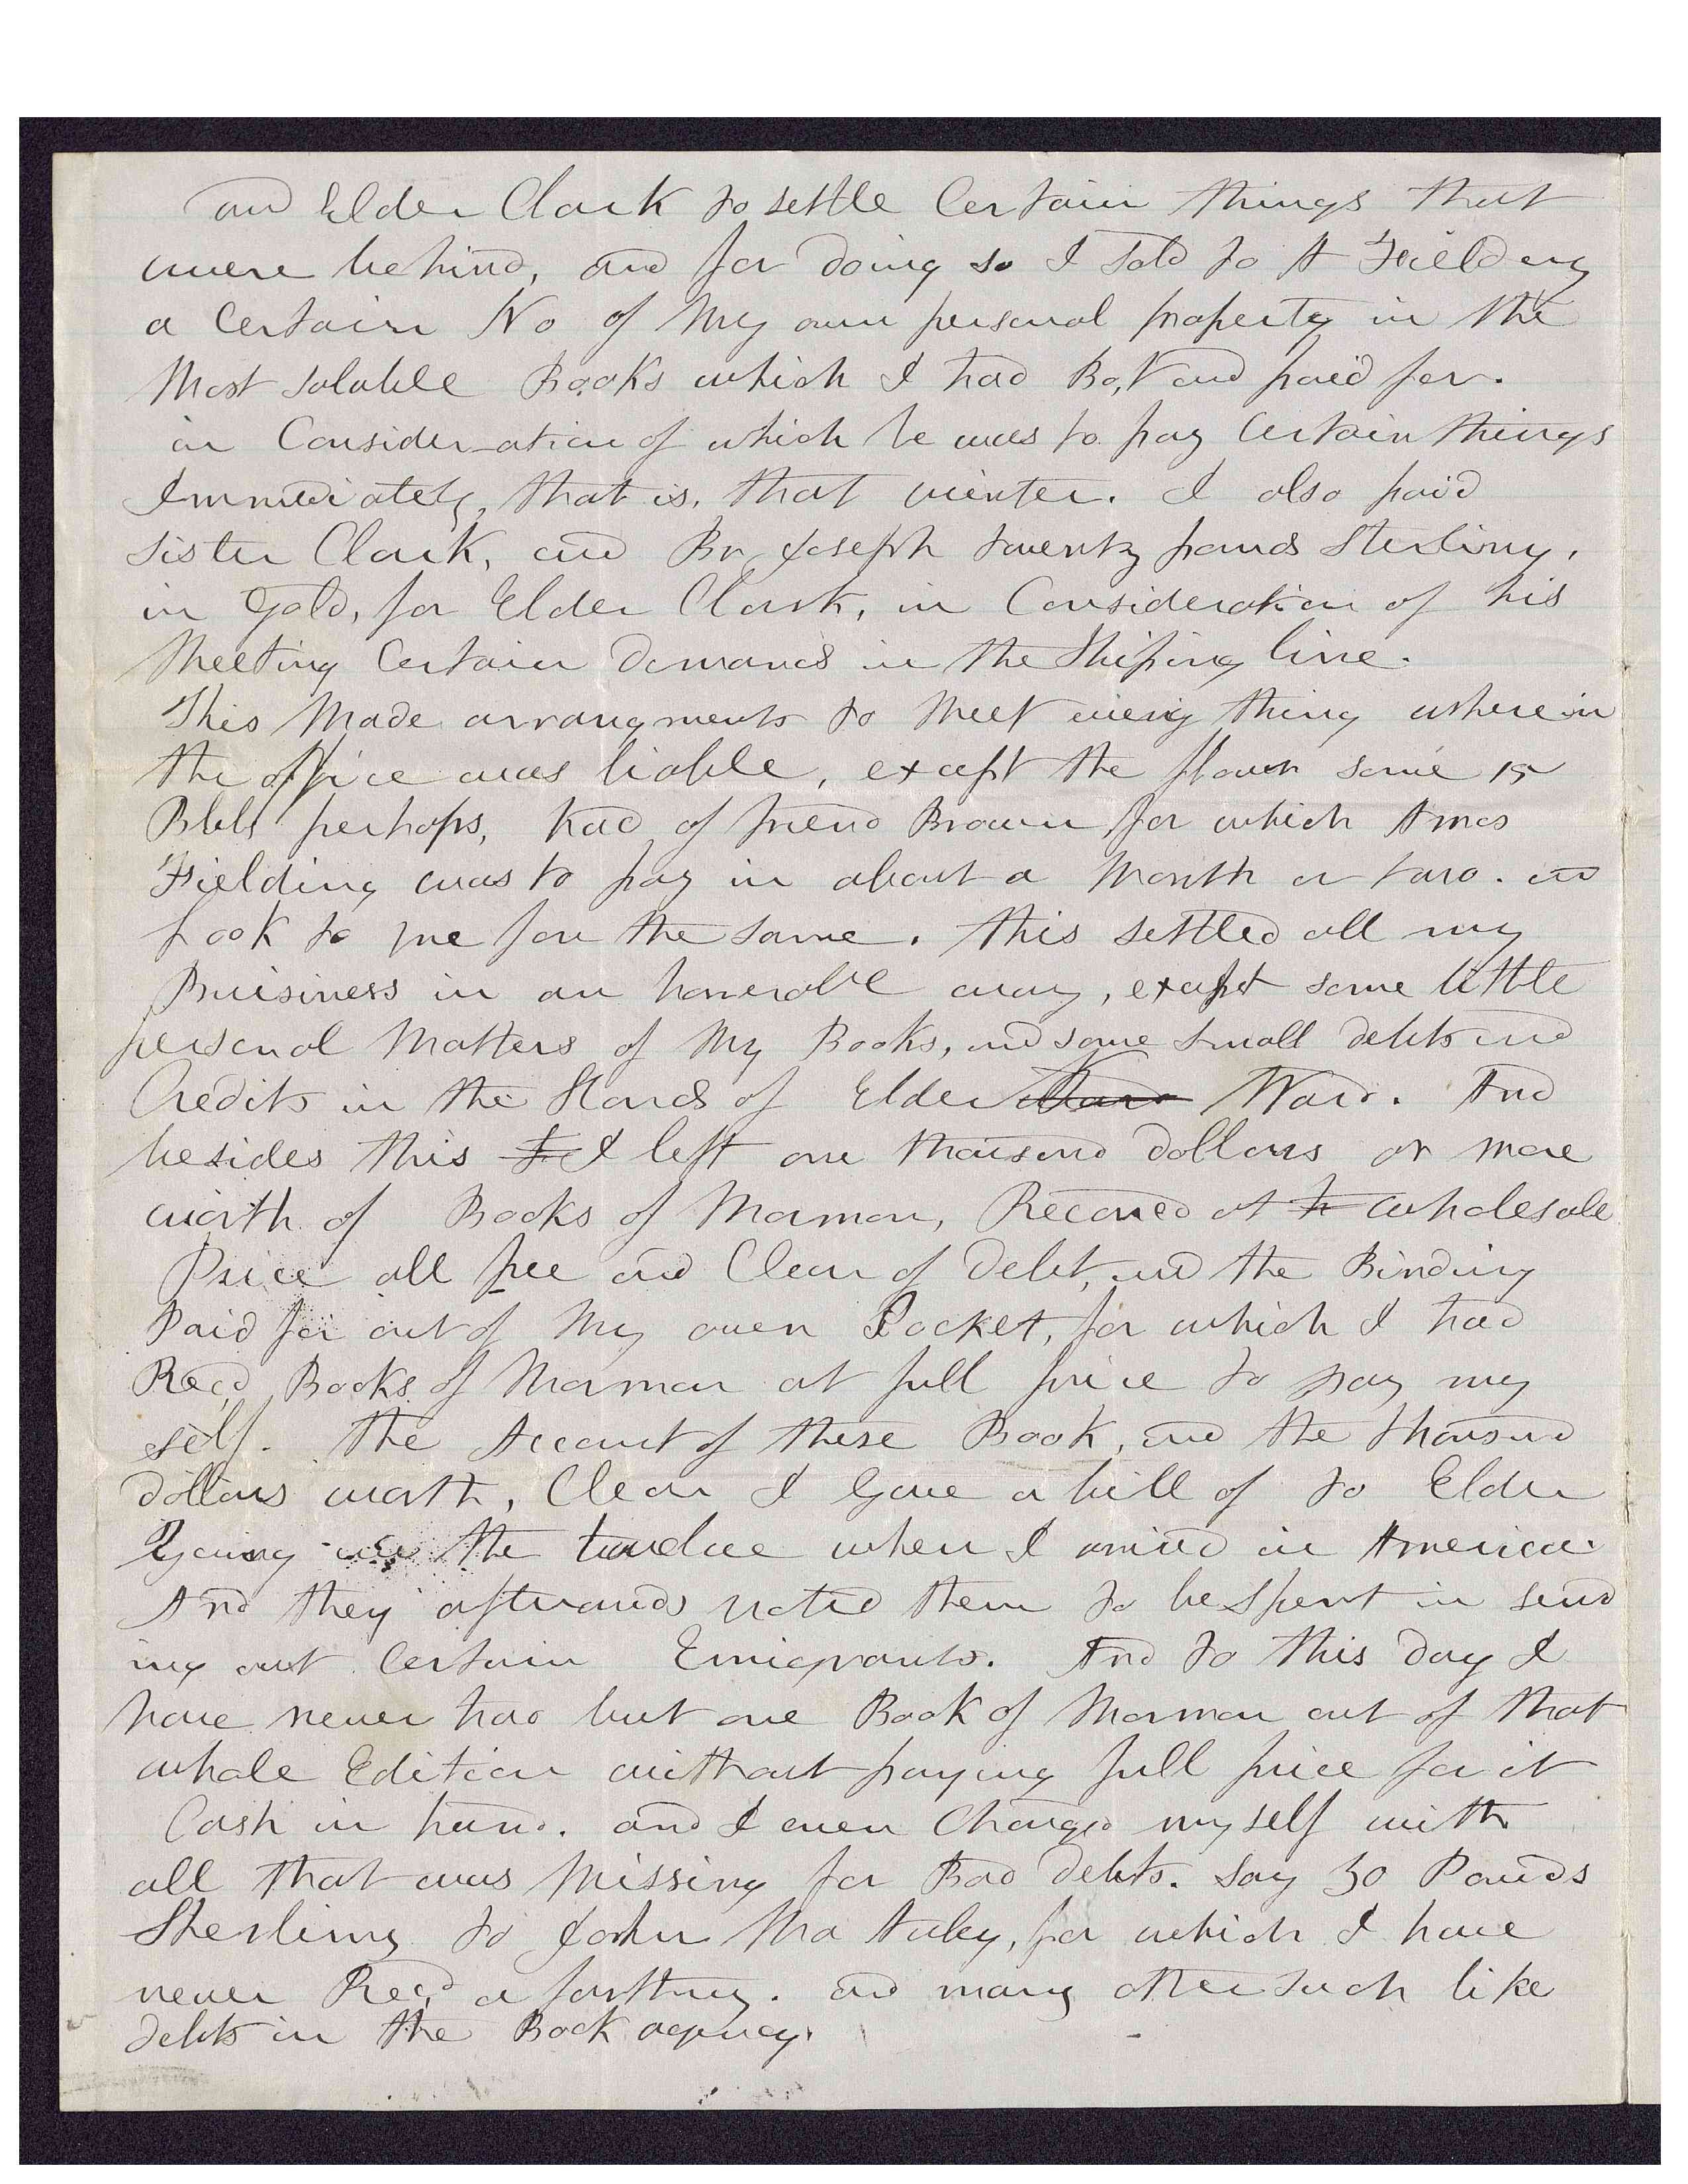 and Elder Clark to settle Certain things that
were behind, and for doing so I Sold to A Fielding
a Certain No of My own personal property in the
Most salable Books which I had Bo,t and paid for.
in Consideration of which he was to pay Certain things
Immediately, that is, that winter. I also paid
sister Clark, and Br Joseph twenty pounds Sterling,
in Gold, for Elder Clark, in Consideration of his
Meeting Certain Demands in the Shiping line.
This Made arrangments to Meet every thing wherein
the office was liable, except the flour some 15
Bbls perhaps, had of friend Brown for which Amos
Fielding was to pay in about a Month or two. and
Look to me for the same. this settled all my
Buisiness in an honerable way, except some little
personal Matters of My Books, and some small debts and
Credits in the Hands of Elder Ward. And
besides this I left one thousand dollars or more
worth of Books of Mormon, Reconed at wholesale
Price all free and Clear of Debt, and the Binding
Paid for out of My own Pocket, for which I had
Recd Books of Mormon at full price to pay my
self. the Account of these Book, and the thousand
dollars worth, Clear I Gave a bill of to Elder
Young and the twelve when I arived in America.
And they afterwards voted them to be Spent in send
ing out Certain Emigrants. And to this Day I
have never had but one Book of Mormon out of that
whole Edition without paying full price for it
Cash in hand. and I even Charged myself with
all that was Missing for Bad Debts. Say 30 Pounds
Sterling to John for which I have
never Recd a farthing. and many other such like
debts in the Book agency.